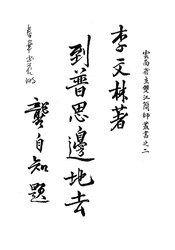 雲南省立雙江簡師叢書之二
李文林著
到普思邊地去
龔自知題